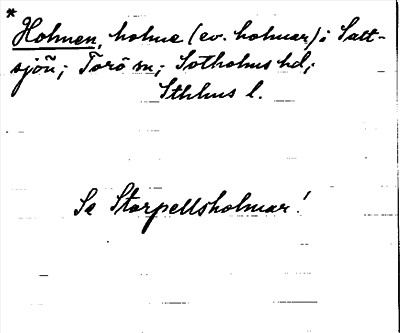 *
Holmen, holme (ev. holmar) i Salt-
sjön; Torö sn; Sotholms hd;
Sthlms l.
Se Storpellsholmar!